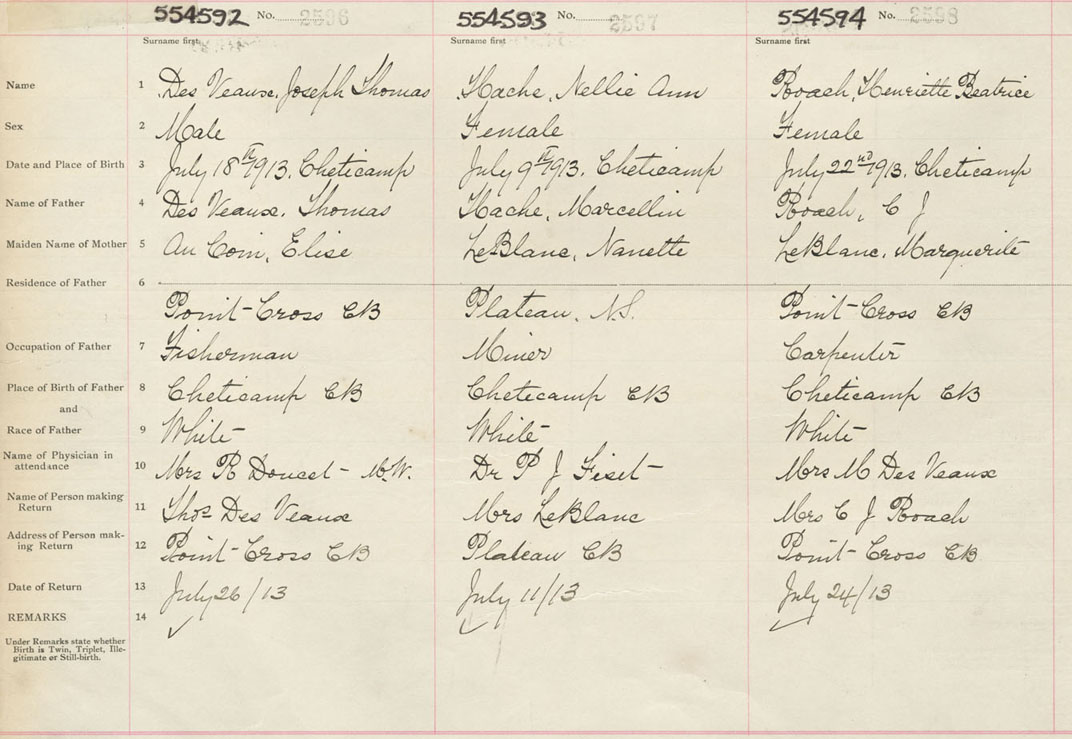 554592 No. 2596 554593 No. 2597 554594 No. 2598
Surname first Surname first Surname first
Name 1 Des Veaux, Joseph Thomas Hache, Nellie Ann Roach, Henriette Beatrice
Sex 2 Male Female Female
Date and Place of Birth 3 July 18th 1913. Cheticamp July 9th 1913. Cheticamp July 22nd 1913. Cheticamp
Name of Father 4 Des Veaux, Thomas Hache, Marcellin Roach, C J
Maiden Name of Mother 5 Au Coin, Elise LeBlanc, Nanette LeBlanc, Marguerite
Residence of Father 6
Point-Cross CB Plateau, N.S. Point-Cross CB
Occupation of Father 7 Fisherman Miner Carpenter
Place of Birth of Father 8 Cheticamp CB Cheticamp CB Cheticamp CB
and
Race of Father 9 White White White
Name of Physician in
attendance 10 Mrs R Doucet - M.W. Dr P J Fiset Mrs M Des Veaux
Name of Person making
Return 11 Thos Des Veaux Mrs LeBlanc Mrs C J Roach
Address of Person mak-
ing Return 12 Point-Cross CB Plateau CB Point-Cross CB
Date of Return 13 July 26/13 July 11/13 July 24/13
REMARKS 14
Under Remarks state whether
Birth is Twin, Triplet, Ille-
gitimate or Still-birth.